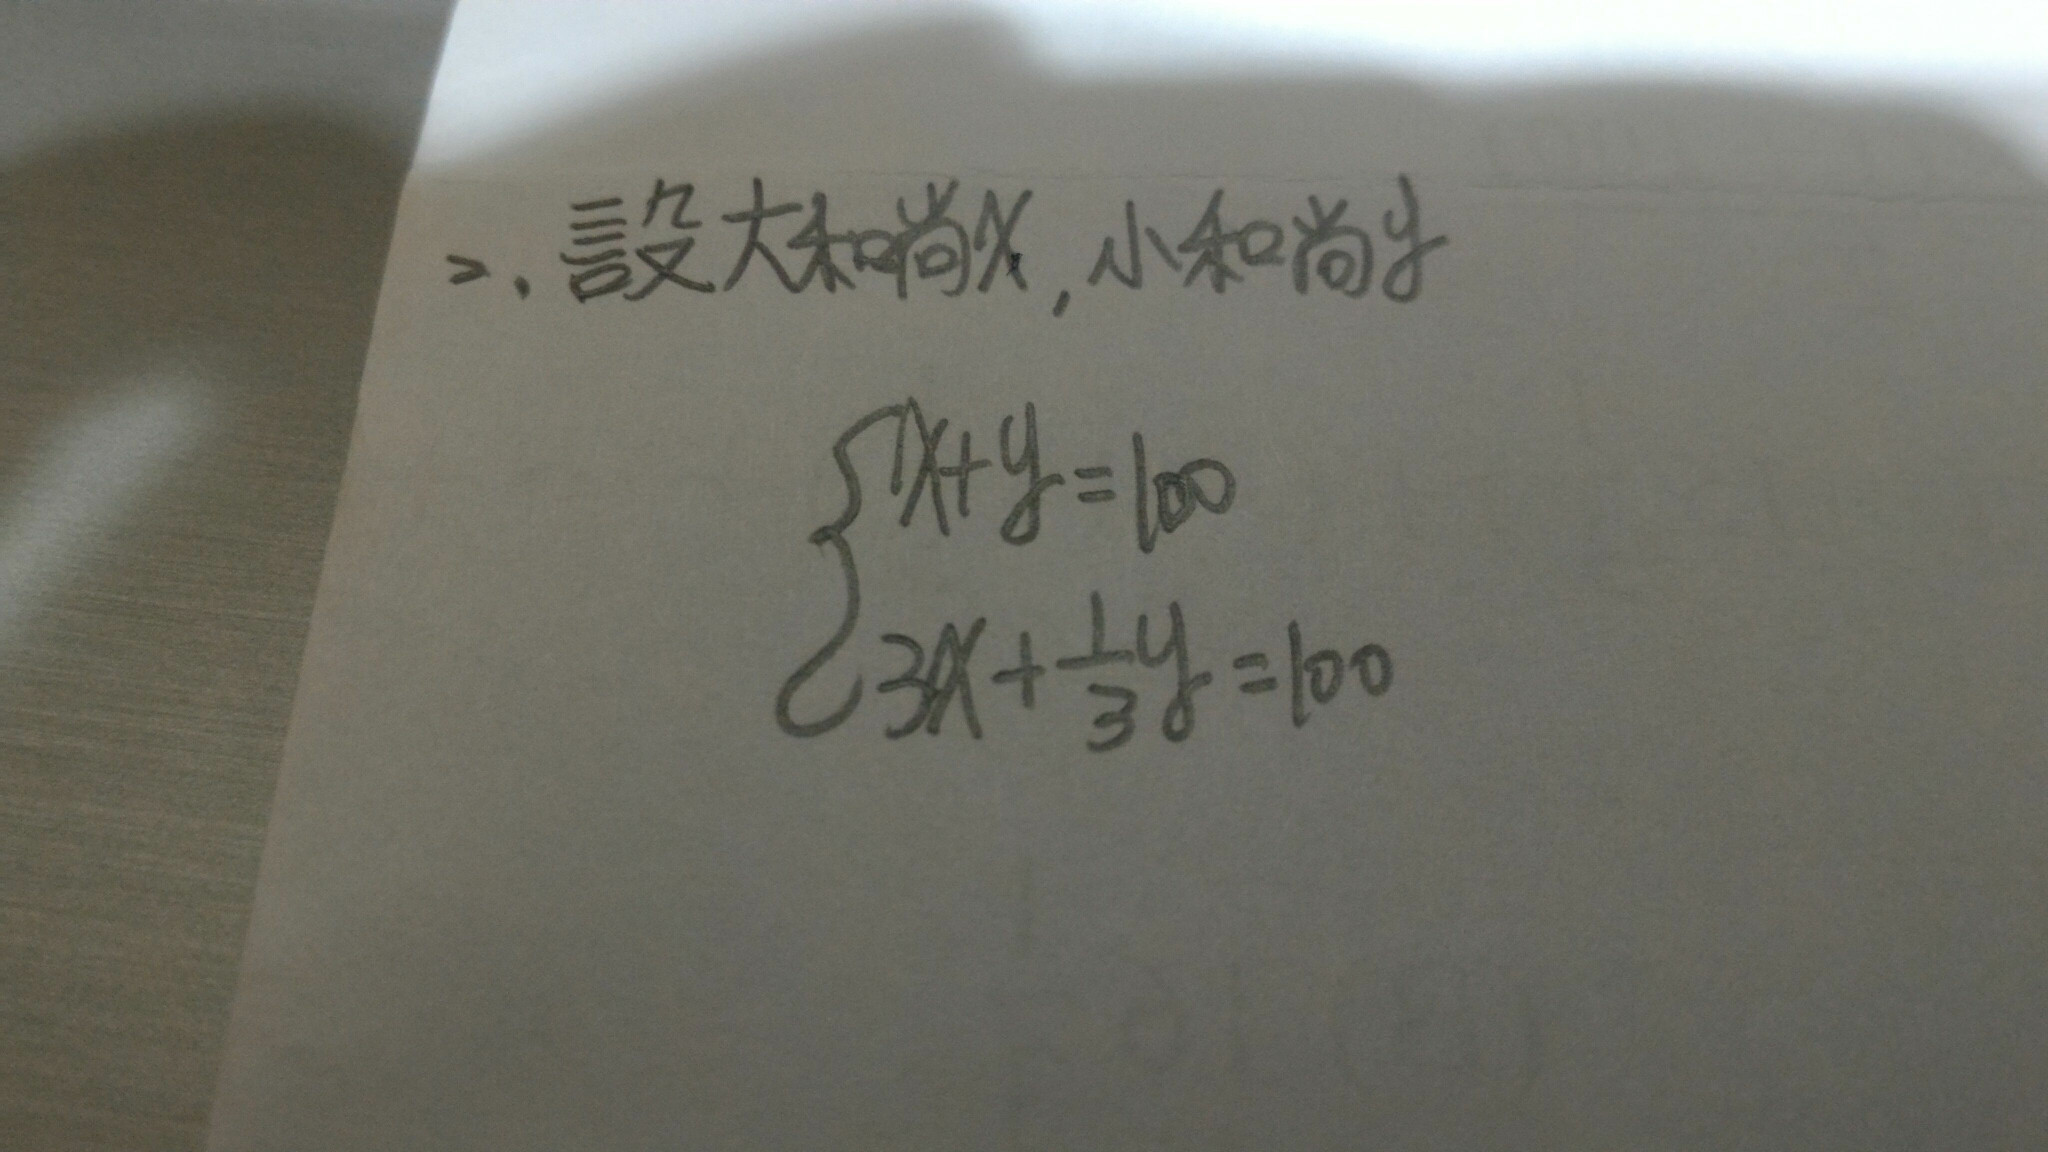 2. 設大和尚x, 小和尚y
x+y=100
3x+1/3y=100